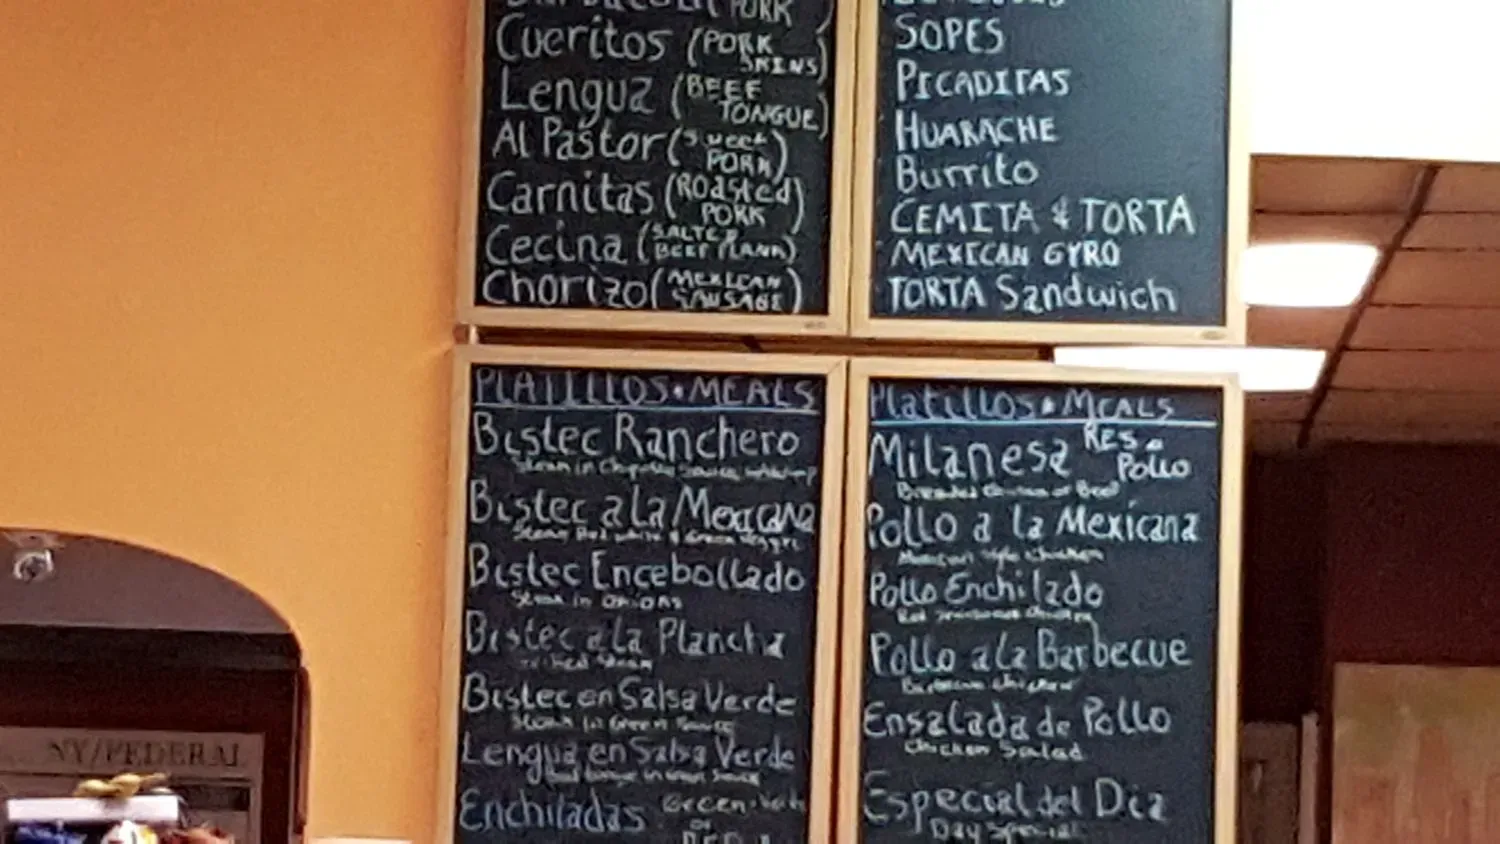 (PORK
Cueritos (PORK
SKINS)
Lengua (BEEF
TONGUE)
Al Pastor (Sweet
PORK)
Carnitas (ROasted
PORK)
Cecina (SALTED
BEEF
Chorizo (MEXICAN
SAUSAGE)
SOPES
PICADITAS
HUARACHE
Burrito
CEMITA & TORTA
MEXICAN GYRO
TORTA Sandwich
PLATILLOS • MEALS
Bistec Ranchero
Steak in Chipotle Sauce
Bistec a La Mexicana
Steak Red white & Green Veggie
Bistec Encebollado
Steak in Onions
Bistec a La Plancha
Steak
Bistec en Salsa Verde
Steak in Green Sauce
Lengua en Salsa Verde
Beef tongue in Green Sauce
Enchiladas Green
or
RED
Platillos • Meals
Milanesa RES o
Pollo
Breaded Chicken or Beef
Pollo a la Mexicana
Mexican Style Chicken
Pollo Enchilado
Red Chicken
Pollo a La Barbecue
Barbecue Chicken
Ensalada de Pollo
Chicken Salad
Especial del Dia
Day Special
NY/FEDERAL